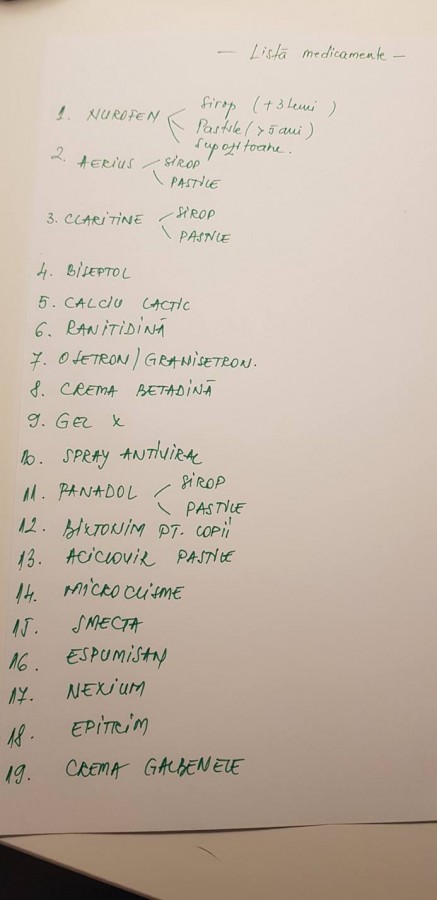 — Listă medicamente —
1. NUROFEN Sirop (+3 luni)
Pastile (> 5 ani)
Supozitoare.
2. AERIUS SIROP
PASTILE
3. CLARITINE SIROP
PASTILE
4. BISEPTOL
5. CALCIU LACTIC
6. RANITIDINĂ
7. OSETRON/GRANISETRON.
8. CREMA BETADINĂ
9. GEL X
10. SPRAY ANTIVIRAL
11. PANADOL SIROP
PASTILE
12. BIXTONIM PT. COPII
13. ACICLOVIR PASTILE
14. MICROCLISME
15. SMECTA
16. ESPUMISAN
17. NEXIUM
18. EPITRIM
19. CREMA GALBENELE